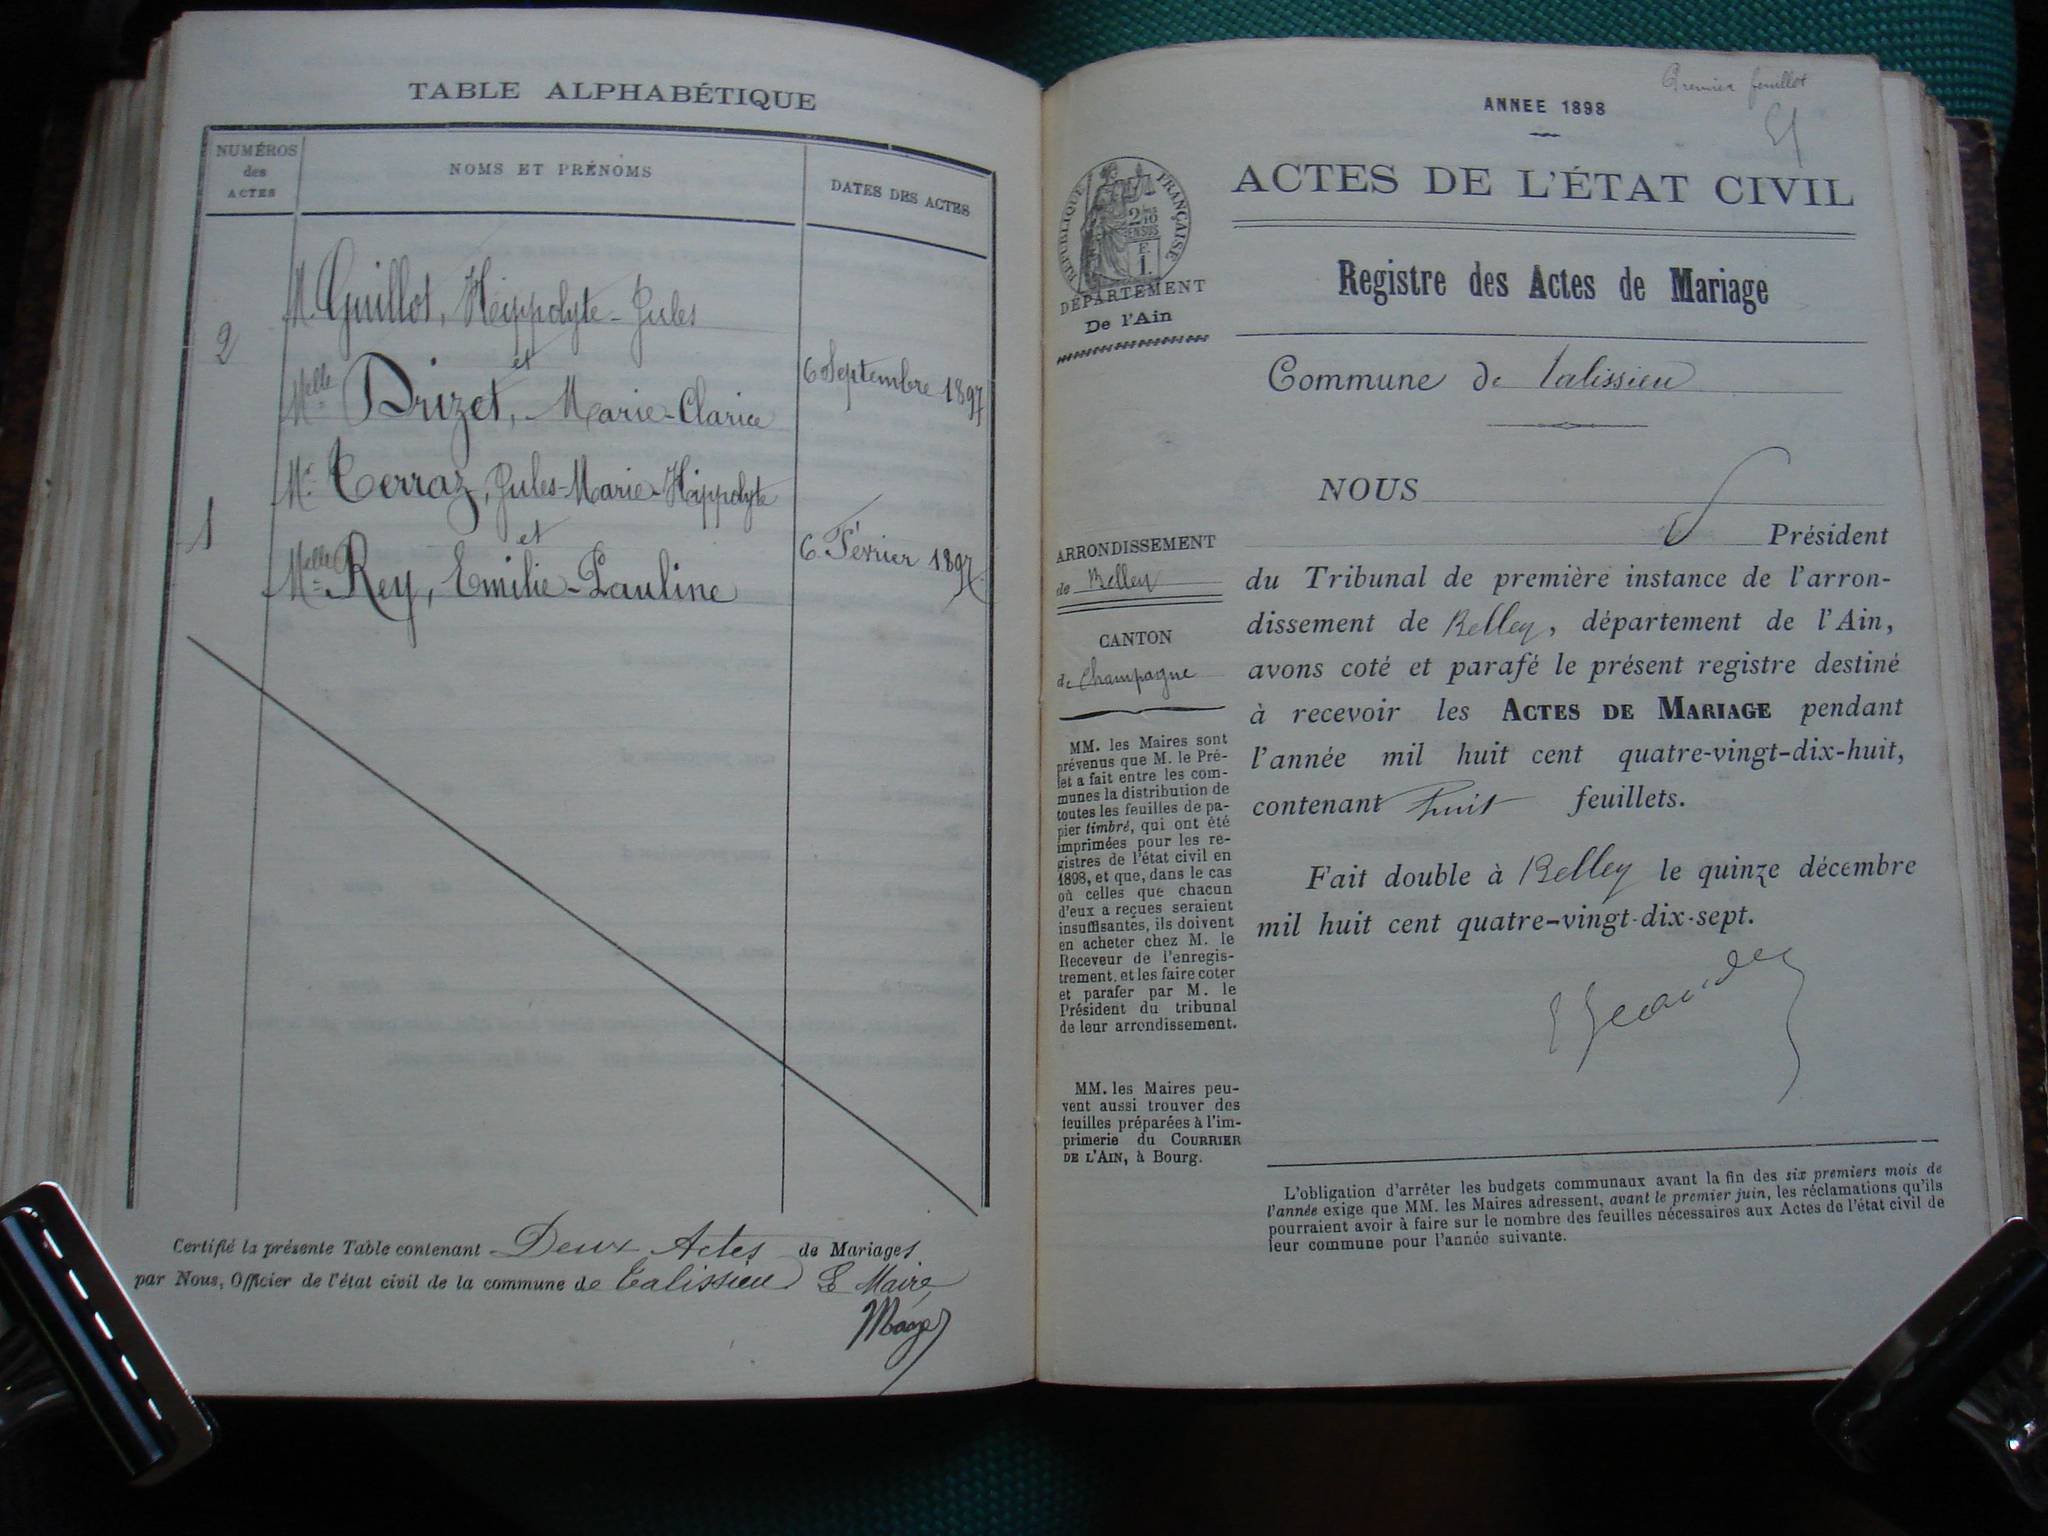 TABLE ALPHABÉTIQUE
NUMÉROS
des
ACTES
NOMS ET PRÉNOMS
DATES DES ACTES
M. Guillot, Hippolyte-Jules
2
et
6 Septembre 1897
Melle Drizet, Marie-Clarice
Mr. Terraz, Jules-Marie-Hippolyte
1
et
6 Février 1897
Melle Rey, Emilie-Pauline
Certifié la présente Table contenant Deux Actes de Mariages
par Nous, Officier de l'état civil de la commune de Talissieu Le Maire,
Premier feuillet
ANNEE 1898
ACTES DE L'ÉTAT CIVIL
RÉPUBLIQUE FRANÇAISE
2 10
EN SUS
F.
1.
DÉPARTEMENT
De l'Ain
Registre des Actes de Mariage
Commune de Talissieu
NOUS
Président
du Tribunal de première instance de l'arron-
dissement de Belley, département de l'Ain,
avons coté et parafé le présent registre destiné
à recevoir les ACTES DE MARIAGE pendant
l'année mil huit cent quatre-vingt-dix-huit,
contenant huit feuillets.
Fait double à Belley le quinze décembre
mil huit cent quatre-vingt-dix-sept.
ARRONDISSEMENT
de Belley
CANTON
de Champagne
MM. les Maires sont
prévenus que M. le Pré-
fet a fait entre les com-
munes la distribution de
toutes les feuilles de pa-
pier timbré, qui ont été
imprimées pour les re-
gistres de l'état civil en
1898, et que, dans le cas
où celles que chacun
d'eux a reçues seraient
insuffisantes, ils doivent
en acheter chez M. le
Receveur de l'enregis-
trement, et les faire coter
et parafer par M. le
Président du tribunal
de leur arrondissement.
MM. les Maires peu-
vent aussi trouver des
feuilles préparées à l'im-
primerie du COURRIER
DE L'AIN, à Bourg.
L'obligation d'arrêter les budgets communaux avant la fin des six premiers mois de
l'année exige que MM. les Maires adressent, avant le premier juin, les réclamations qu'ils
pourraient avoir à faire sur le nombre des feuilles nécessaires aux Actes de l'état civil de
leur commune pour l'année suivante.